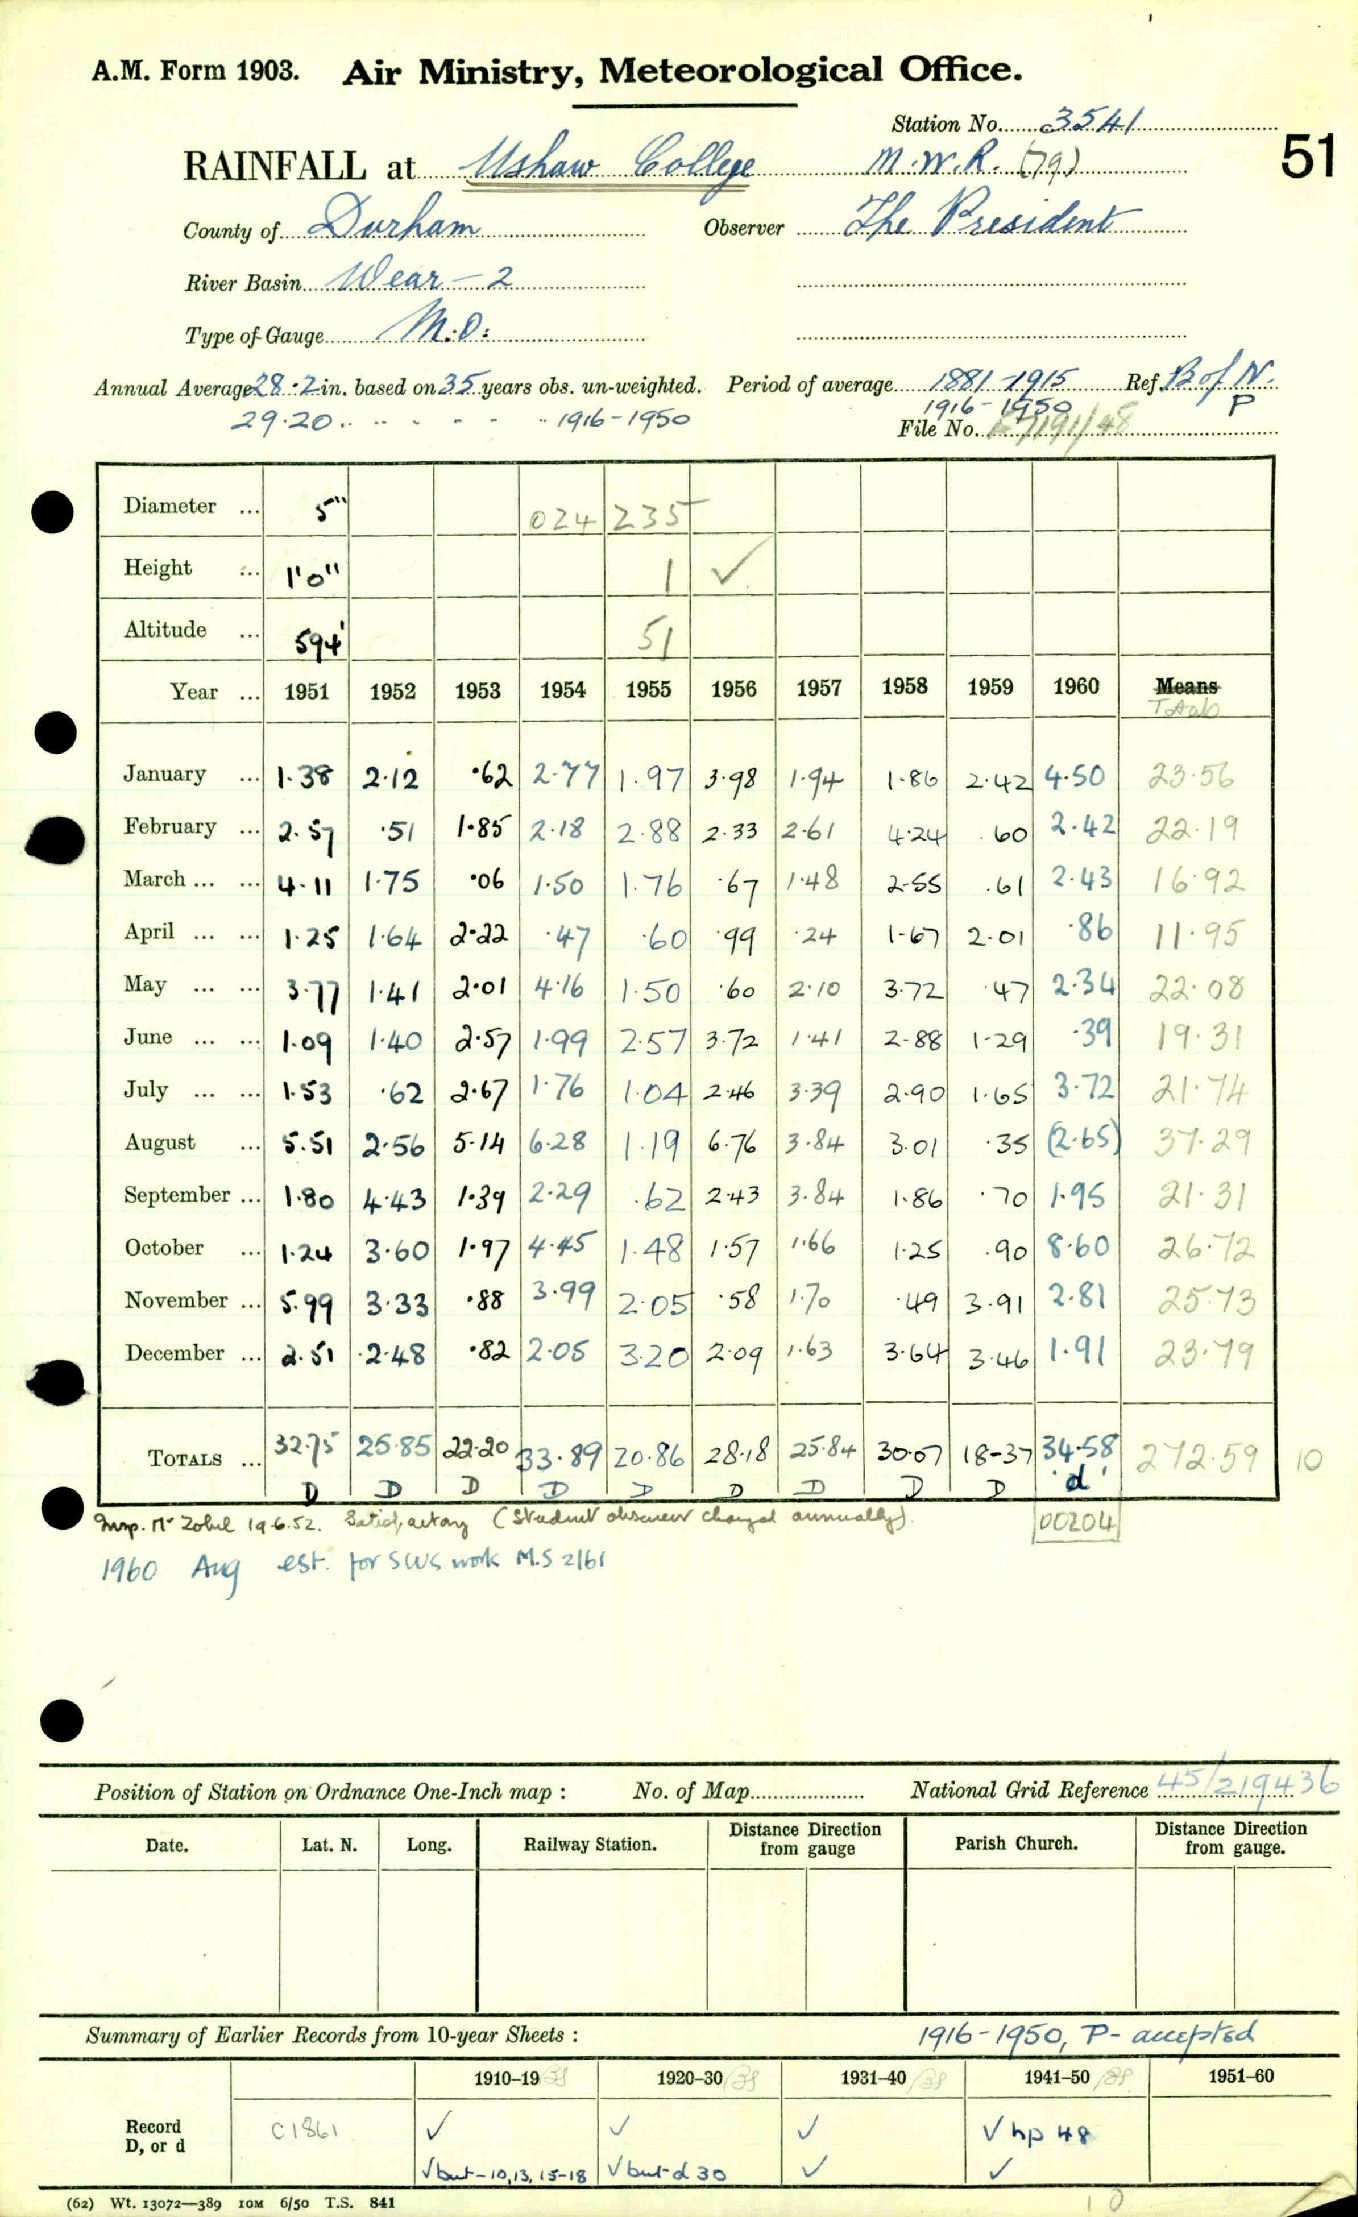 A.M. Form 1903. Air Ministry, Meteorological Office.
Station No. 3541
RAINFALL at Ushaw College M.W.R. (79) 51
County of Durham Observer The President
River Basin Wear - 2
Type of Gauge M.O.
Annual Average 28.2 in. based on 35 years obs. un-weighted. Period of average 1881-1915 Ref. B of N.
29.20 .. .. - - - .. 1916-1950 1916-1950 P
File No.
Diameter ... 5" 024 235
Height ... 1'0" 1 ✓
Altitude ... 594' 51
Year ... 1951 1952 1953 1954 1955 1956 1957 1958 1959 1960 Means
Totals
January ... 1.38 2.12 .62 2.77 1.97 3.98 1.94 1.86 2.42 4.50 23.56
February ... 2.57 .51 1.85 2.18 2.88 2.33 2.61 4.24 .60 2.42 22.19
March ... ... 4.11 1.75 .06 1.50 1.76 .67 1.48 2.55 .61 2.43 16.92
April ... ... 1.25 1.64 2.22 .47 .60 .99 .24 1.67 2.01 .86 11.95
May ... ... 3.77 1.41 2.01 4.16 1.50 .60 2.10 3.72 .47 2.34 22.08
June ... ... 1.09 1.40 2.57 1.99 2.57 3.72 1.41 2.88 1.29 .39 19.31
July ... ... 1.53 .62 2.67 1.76 1.04 2.46 3.39 2.90 1.65 3.72 21.74
August ... 5.51 2.56 5.14 6.28 1.19 6.76 3.84 3.01 .35 (2.65) 37.29
September ... 1.80 4.43 1.39 2.29 .62 2.43 3.84 1.86 .70 1.95 21.31
October ... 1.24 3.60 1.97 4.45 1.48 1.57 1.66 1.25 .90 8.60 26.72
November ... 5.99 3.33 .88 3.99 2.05 .58 1.70 .49 3.91 2.81 25.73
December ... 2.51 2.48 .82 2.05 3.20 2.09 1.63 3.64 3.46 1.91 23.79
TOTALS ... 32.75 25.85 22.20 33.89 20.86 28.18 25.84 30.07 18-37 34.58 272.59 10
D D D D D D D D D 'd'
Insp. Mr Zobel 19.6.52. Satisfactory (Student observer changed annually). 00204
1960 Aug est. for SWS work M.S 2/61
Position of Station on Ordnance One-Inch map : No. of Map National Grid Reference 45/219436
Date. Lat. N. Long. Railway Station. Distance Direction from gauge Parish Church. Distance Direction from gauge.
Summary of Earlier Records from 10-year Sheets : 1916-1950, P- accepted
1910-19 1920-30 1931-40 1941-50 1951-60
Record D, or d C1861 ✓ ✓ ✓ ✓ hp 48
✓ but - 10, 13, 15-18 ✓ but d 30 ✓ ✓
(62) Wt. 13072—389 10M 6/50 T.S. 841
10